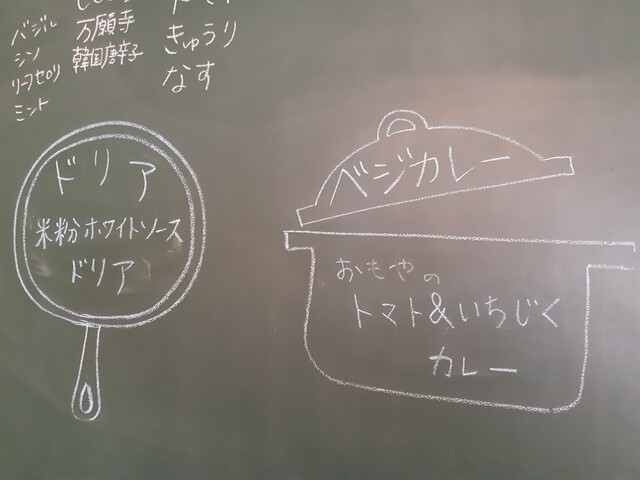 バジル
シソ
リーフセロリ
ミント
万願寺
韓国唐辛子
きゅうり
なす
ドリア
米粉ホワイトソース
ドリア
ベジカレー
おもやの
トマト&いちじく
カレー